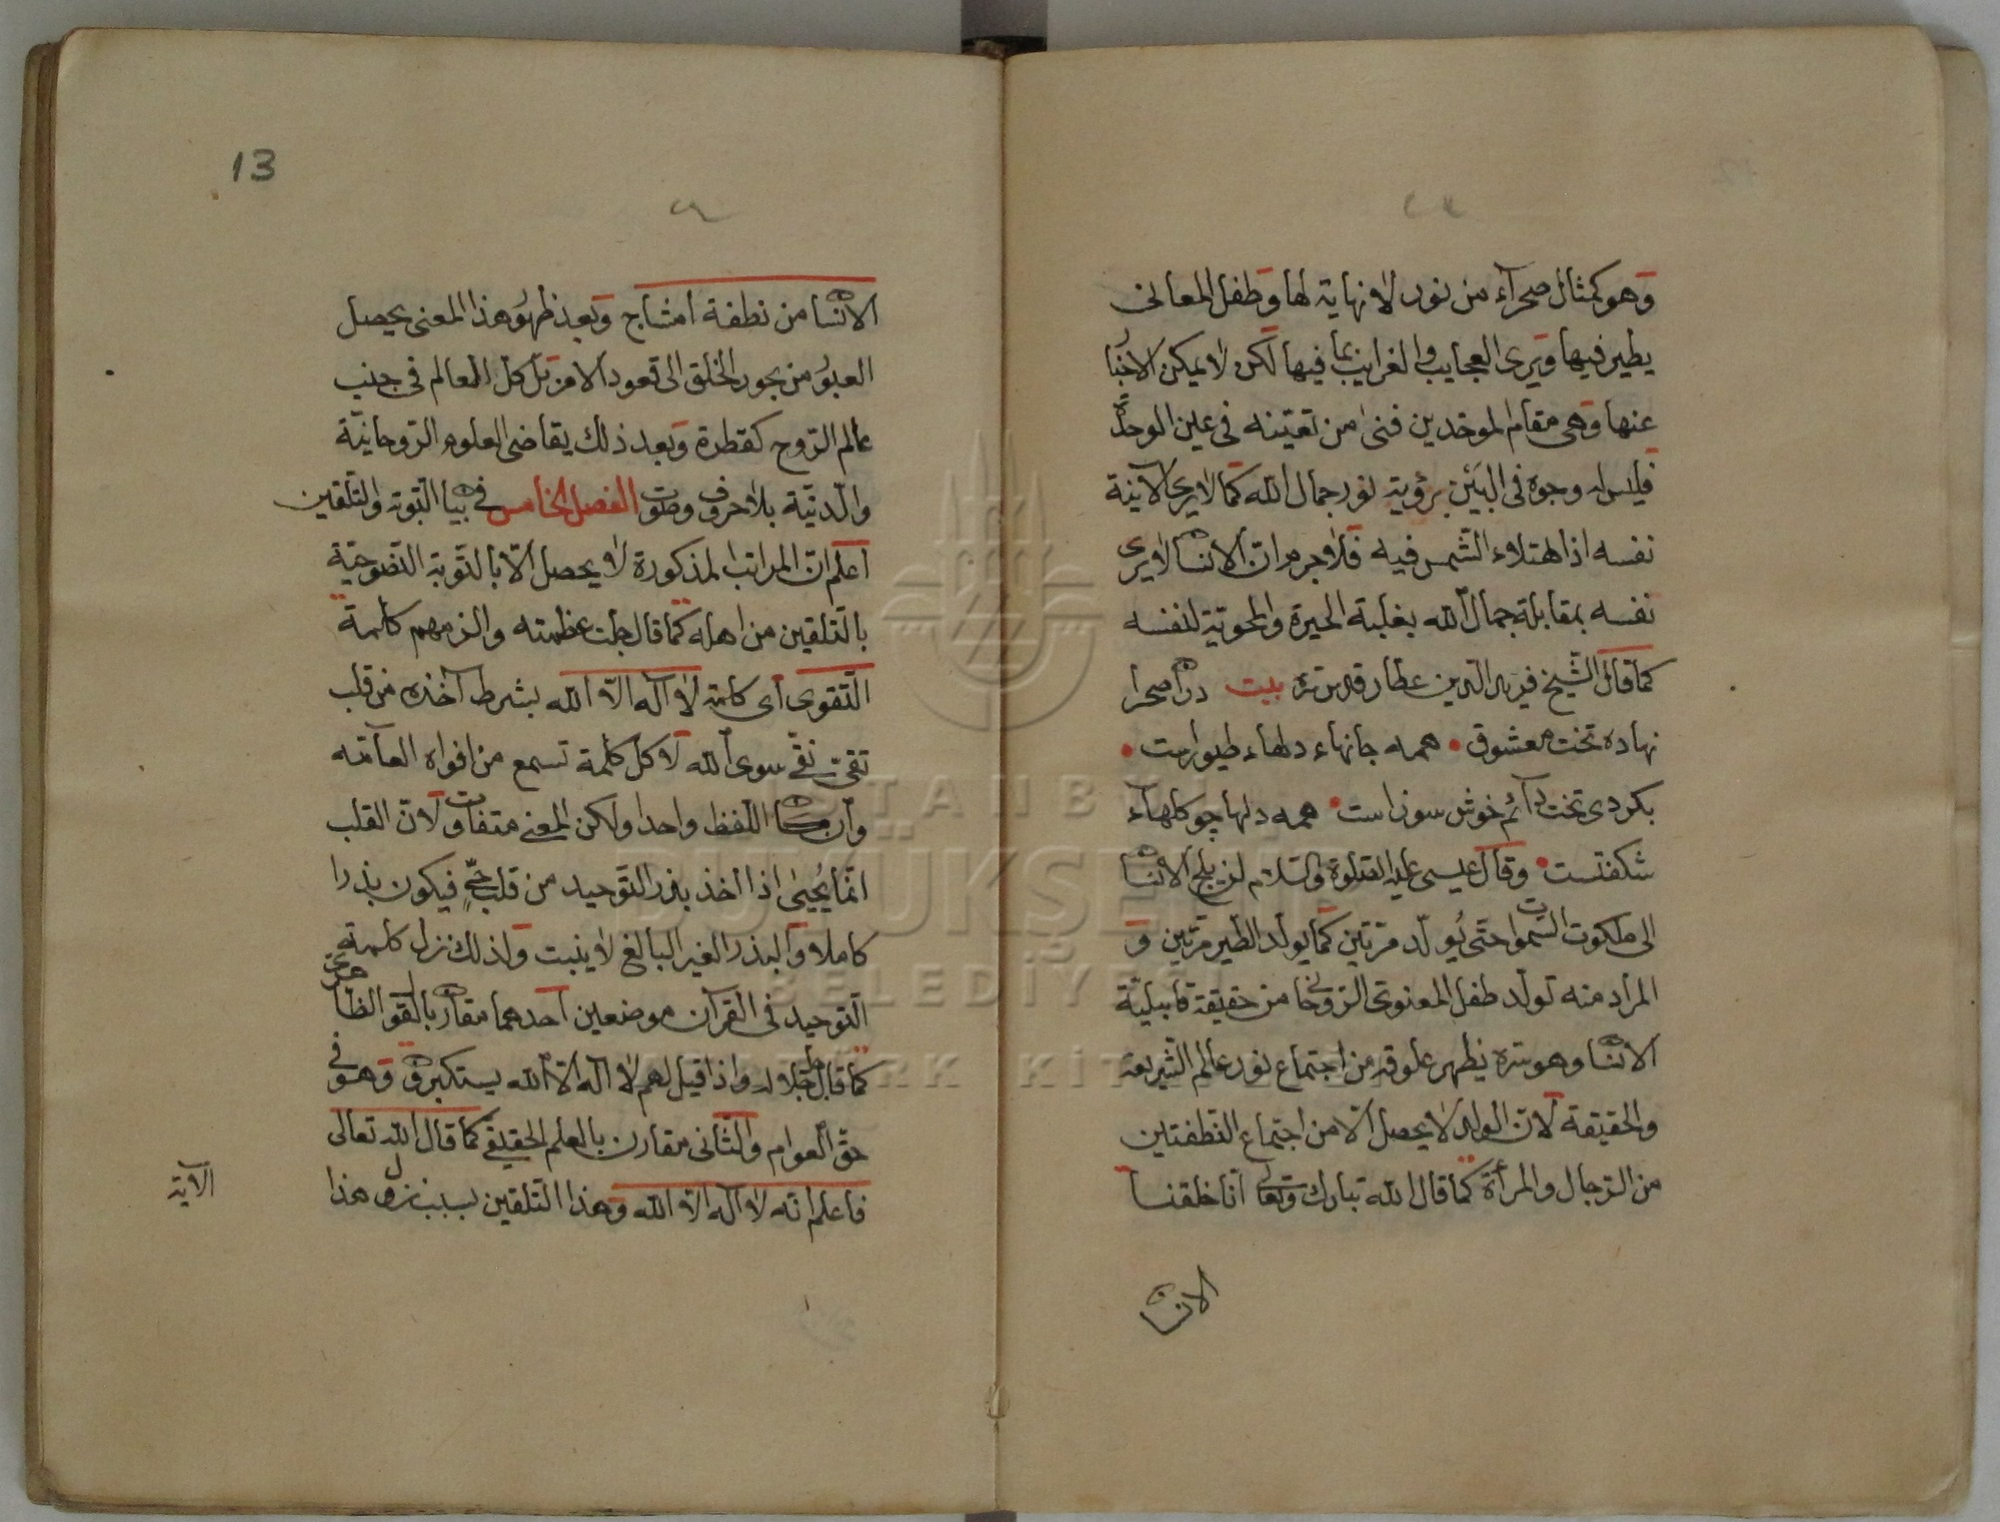 وهو كمثال صحرآء من نور لا نهاية لها وطفل المعانى
يطير فيها ويرى العجايب والغرايب بما فيها لكن لا يمكن الاخبا
عنها وهى مقام الموحدين فنى من تعينه فى عين الوحدة
فليس له وجود فى البين برؤية نور جمال الله كما لا يرى الآينة
نفسه اذا امتلاء الشمس فيه فلا جرم ان الانسان لا يرى
نفسه بمقابلة جمال الله بغلبة الحيرة والمحوية لنفسه
كما قال الشيخ فريد الدين عطار قدس سره بيت دران صحرا
نهاده تخت معشوق همه جانهاء دلهاء طيورست
بكردى تخت دآئم خوش سوزاست همه دلها چو كلهآء
شكفتست وقال عيسى عليه الصلوة والسلام لن يلج الانسان
الى ملكوت السموات حتى يولد مرتين كما يولد الطير مرتين و
المراد منه تولد طفل المعنوى الروحانى من حقيقة قابيلية
الانسان وهو سره يظهر علوقه من اجتماع نور عالم الشريعة
والحقيقة لان الولد لا يحصل الا من اجتماع النطفتين
من الرجال والمرأة كما قال الله تبارك وتعالى انا خلقنا
الانسان
13
الانسان من نطفة امشاج وبعد ظهور هذا المعنى يحصل
العبور من بحور الخلق الى قعود الامر بل كل العالم فى جنب
عالم الروح كقطرة وبعد ذلك يقاضى العلوم الروحانية
والدنية بلا حرف وصوت الفصل الخامس فى بيان التوبة والتلقين
اعلم ان المراتب المذكورة لا يحصل الا بالتوبة النصوحية
بالتلقين من اهله كما قال جلت عظمته والزمهم كلمة
التقوى أى كلمة لا اله الا الله بشرط آخذه من قلب
تقى نقى سوى الله لا كل كلمة تسمع من افواه العآمه
وان كان اللفظ واحدا ولكن المعنى متفاوت لان القلب
انما يحيى اذا اخذ بذر التوحيد من قلب حى فيكون بذرا
كاملا والبذر الغير البالغ لا ينبت ولذلك نزل كلمة
التوحيد فى القرآن موضعين احدهما مقارن بالقول الظاهرى
كما قال جل جلاله واذا قيل لهم لا اله الا الله يستكبرون وهو فى
حق العوام والثانى مقارن بالعلم الحقيقى كما قال الله تعالى
فاعلم انه لا اله الا الله وهذا التلقين بسبب نزول هذا
الآية